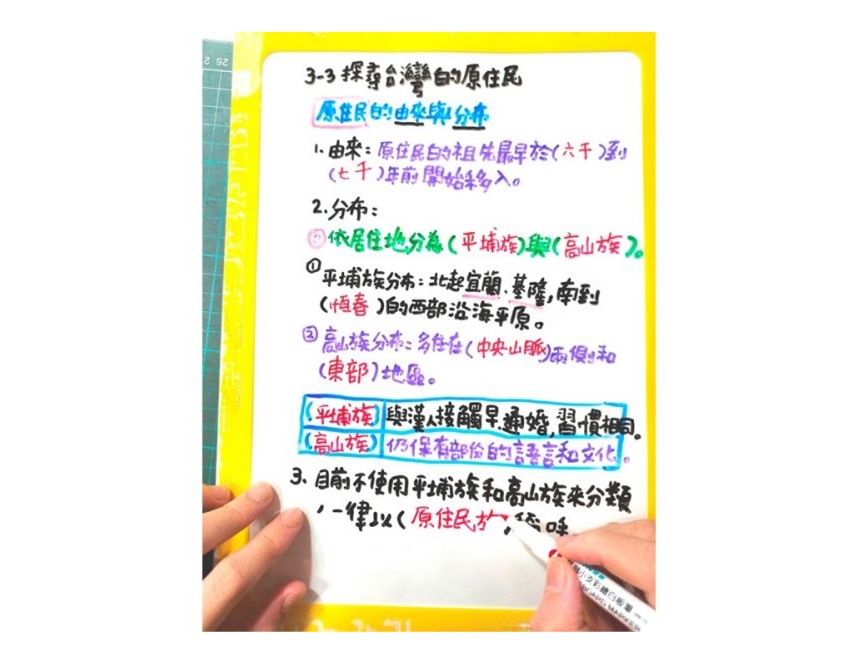 3-3 探尋台灣的原住民
原住民的由來與分布
1. 由來：原住民的祖先最早於(六千)到
(七千)年前開始移入。
2. 分布：
依居住地分為(平埔族)與(高山族)。
① 平埔族分布：北起宜蘭.基隆,南到
(恆春)的西部沿海平原。
② 高山族分布：多住在(中央山脈)兩側和
(東部)地區。
(平埔族) 與漢人接觸早,通婚,習慣相同。
(高山族) 仍保有部份的語言和文化。
3. 目前不使用平埔族和高山族來分類
，一律以(原住民族